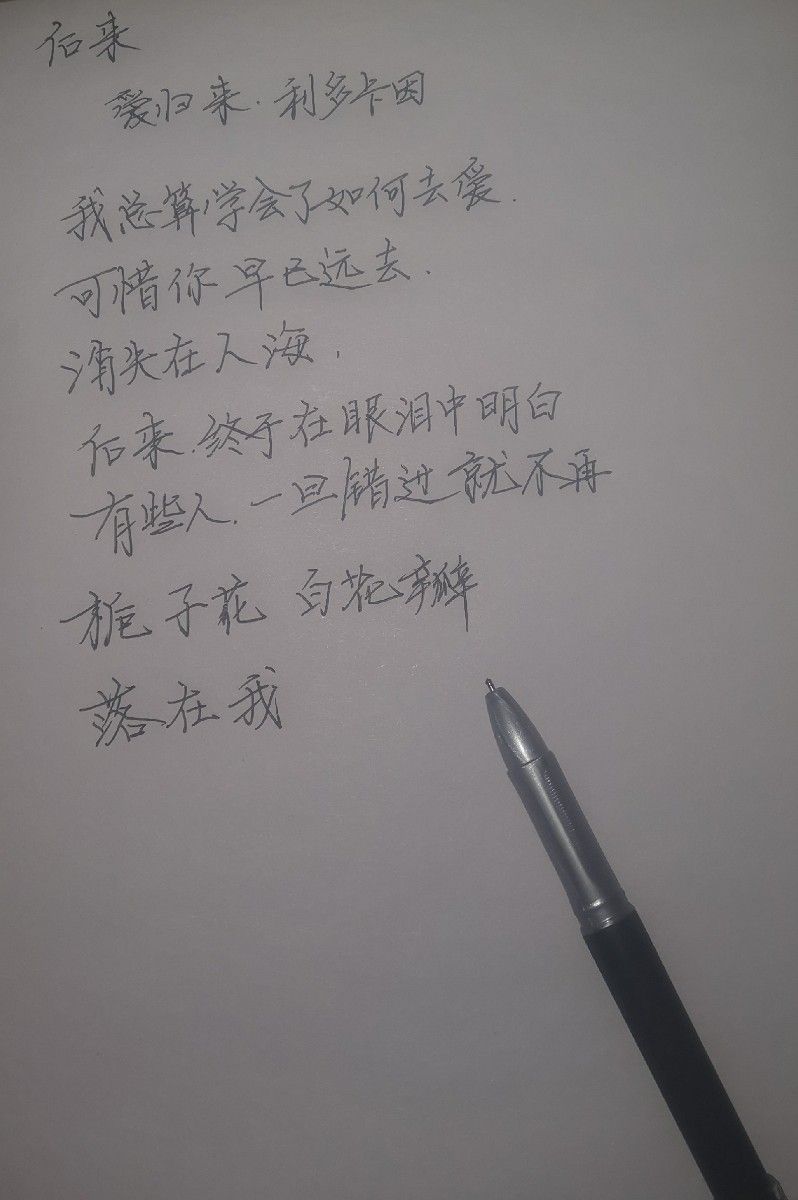 后来
爱归来.利多卡因
我总算学会了如何去爱.
可惜你早已远去.
消失在人海.
后来.终于在眼泪中明白
有些人.一旦错过就不再
栀子花 白花瓣
落在我